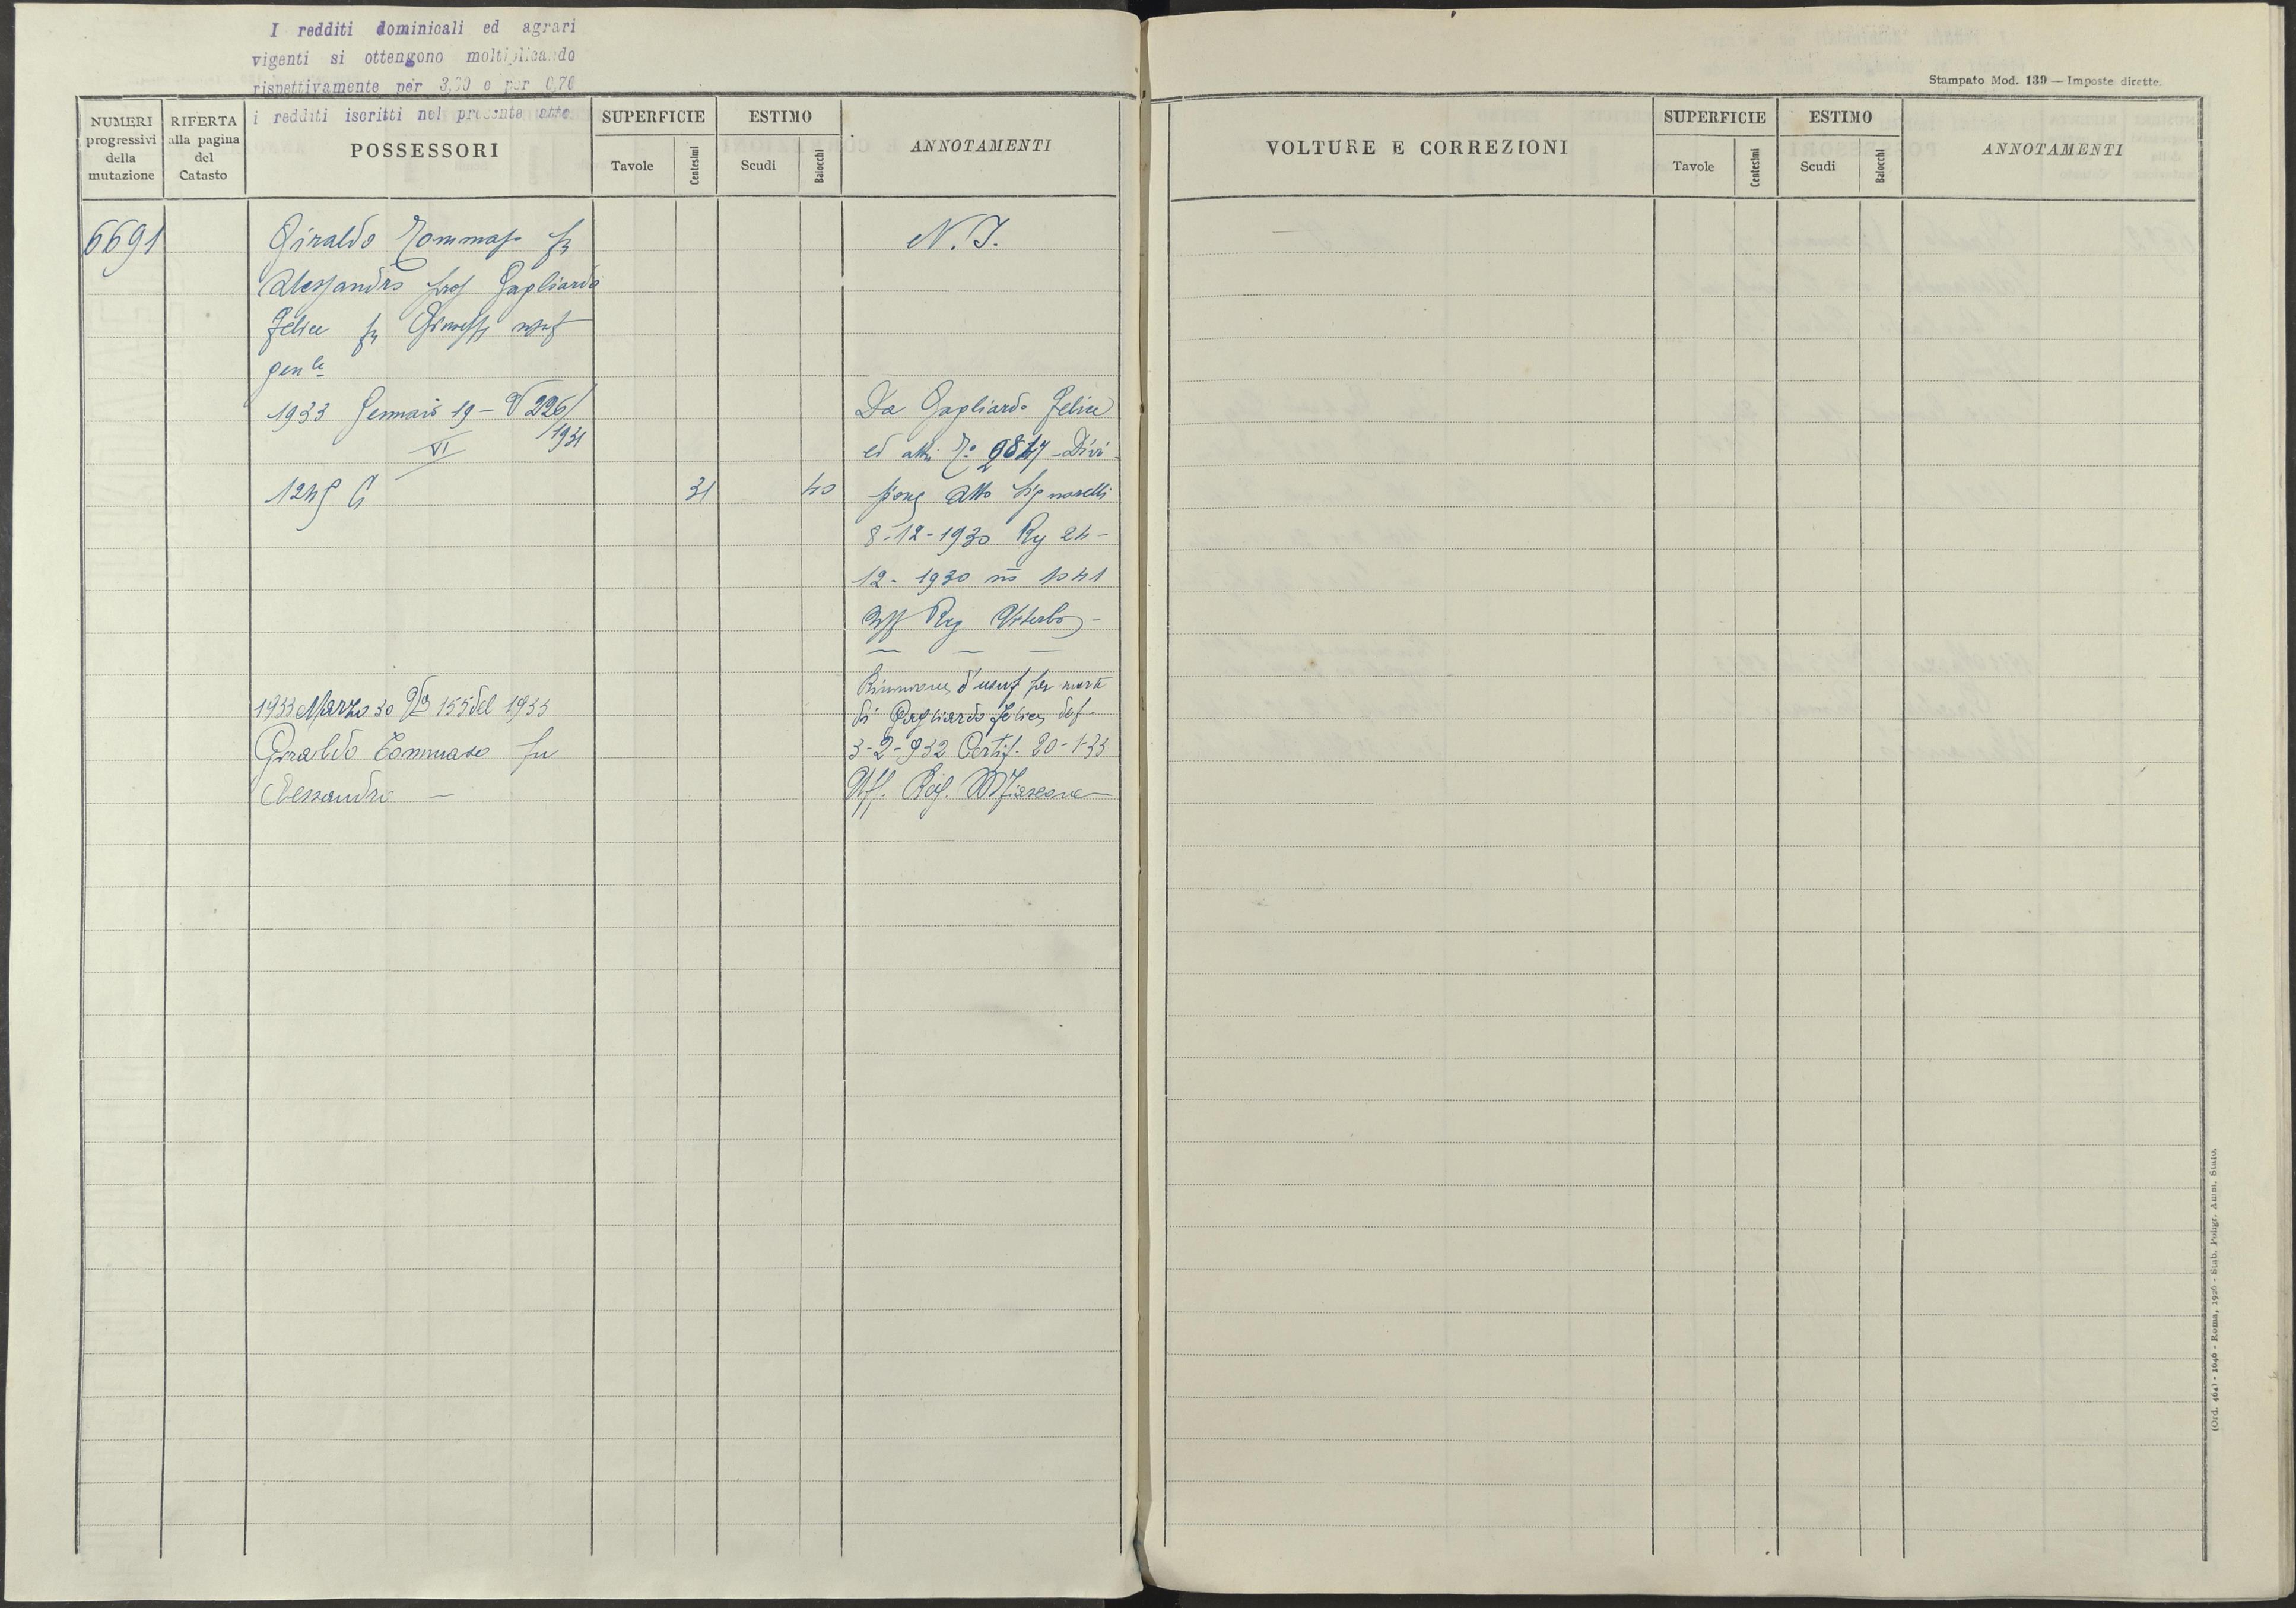 I redditi dominicali ed agrari
vigenti si ottengono moltiplicando
rispettivamente per 3,30 e per 0,70
i redditi iscritti nel presente atto.
NUMERI
progressivi
della
mutazione
RIFERTA
alla pagina
del
Catasto
POSSESSORI
SUPERFICIE
Tavole
Centesimi
ESTIMO
Scudi
Baiocchi
ANNOTAMENTI
6691
Giraldo Tommaso fu
Alessandro prop Gagliardo
Felice fu Giuseppe usuf
gen le
1933 Gennaio 19 - V 226/
1931
VI
31
40
N. I.
Da Gagliardo Felice
ed altri
Divi
sione Atto Signorelli
8-12-1930 Rg 24-
12-1930 no 1041
Uff Rg Viterbo -
1933 Marzo 30 155 del 1933
Giraldo Tommaso fu
Alessandro —
Riunione d'usuf per morte
di Gagliardo Felice def.
3-2-932 Certif. 20-1-33
Uff. Reg.
Stampato Mod. 139 — Imposte dirette.
VOLTURE E CORREZIONI
SUPERFICIE
Tavole
Centesimi
ESTIMO
Scudi
Baiocchi
ANNOTAMENTI
(Ord. 464) - 1646 - Roma, 1926 - Stab. Poligr. Amm. Stato.